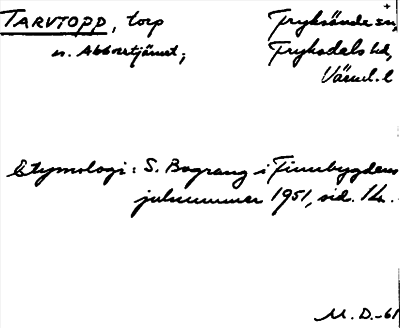 TARVTOPP, torp Fryksände sn,
n. Abborrtjärnet; Fryksdals hd,
Värml. l
Etymologi: S. Bograng i Finnbygdens
julnummer 1951, sid. 14.
M. D. -61